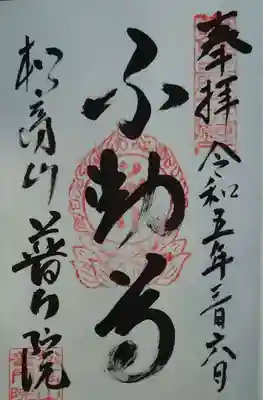 奉拝 令和五年三月六日
不動尊
山 普門院